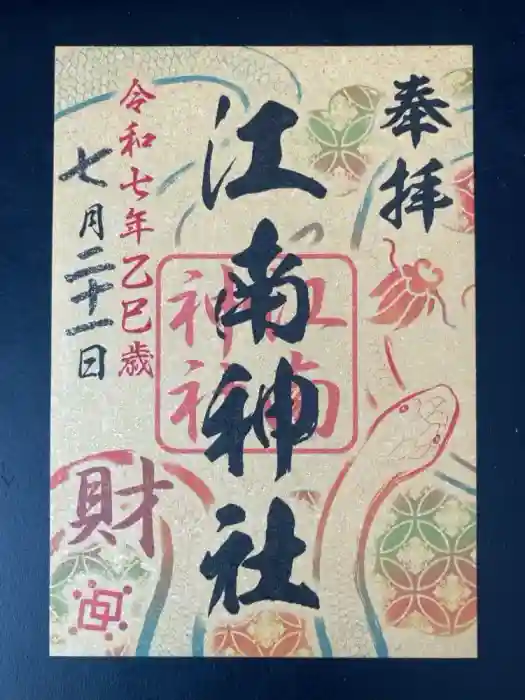 奉拝
江南神社
江南
神社
令和七年乙巳歳
七月二十一日
財